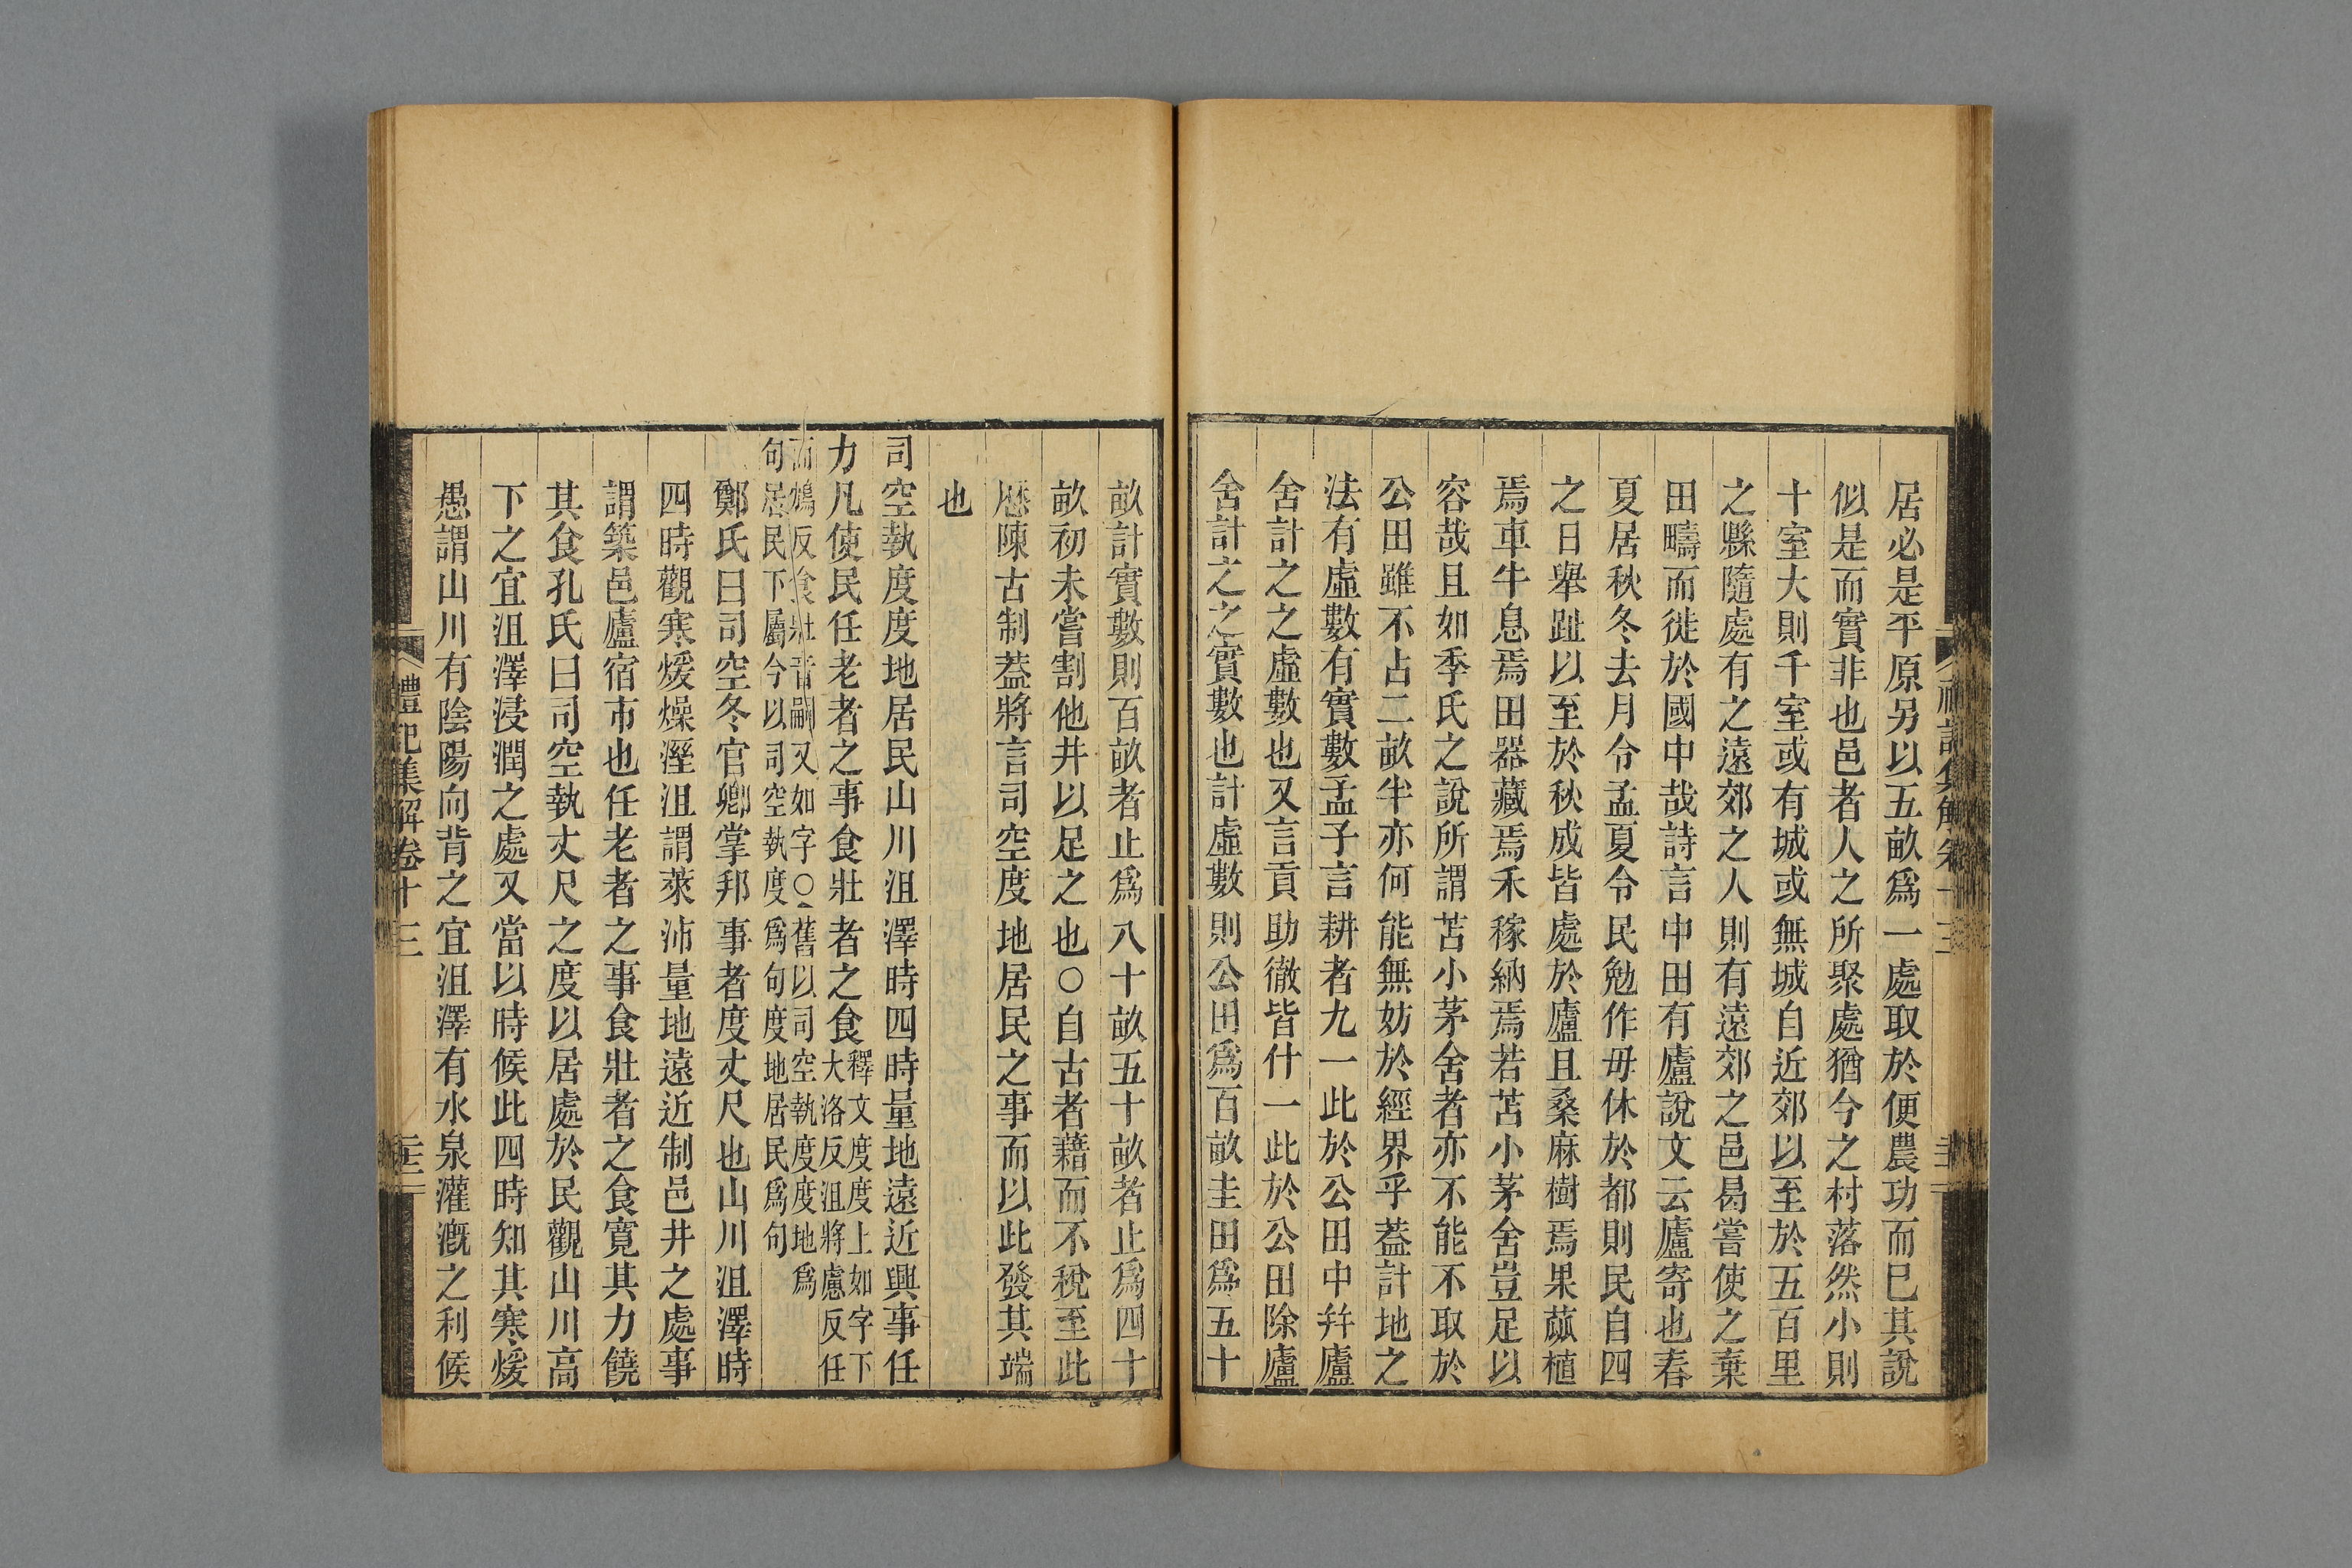 居必是平原另以五畝爲一處取於便農功而已其說
似是而實非也邑者人之所聚處猶今之村落然小則
十室大則千室或有城或無城自近郊以至於五百里
之縣隨處有之遠郊之人則有遠郊之邑曷嘗使之棄
田疇而徙於國中哉詩言中田有廬說文云廬寄也春
夏居秋冬去月令孟夏令民勉作毋休於都則民自四
之日舉趾以至於秋成皆處於廬且桑麻樹焉果蓏植
焉車牛息焉田器藏焉禾稼納焉若苫小茅舍豈足以
容哉且如季氏之說所謂苫小茅舍者亦不能不取於
公田雖不占二畝半亦何能無妨於經界乎葢計地之
法有虛數有實數孟子言耕者九一此於公田中幷廬
舍計之之虛數也又言貢助徹皆什一此於公田除廬
舍計之之實數也計虛數則公田爲百畝圭田爲五十
畝計實數則百畝者止爲八十畝五十畝者止爲四十
畝初未嘗割他井以足之也○自古者藉而不稅至此
歷陳古制葢將言司空度地居民之事而以此發其端
也
司空執度度地居民山川沮澤時四時量地遠近興事任
力凡使民任老者之事食壯者之食釋文度度上如字下
大洛反沮將慮反任
而鴆反食壯音嗣又如字○舊以司空執度度地爲
句居民下屬今以司空執度爲句度地居民爲句
鄭氏曰司空冬官卿掌邦事者度丈尺也山川沮澤時
四時觀寒煖燥溼沮謂萊沛量地遠近制邑井之處事
謂築邑廬宿市也任老者之事食壯者之食寬其力饒
其食孔氏曰司空執丈尺之度以居處於民觀山川高
下之宜沮澤浸潤之處又當以時候此四時知其寒煖
愚謂山川有陰陽向背之宜沮澤有水泉灌漑之利候
禮記集解卷十三